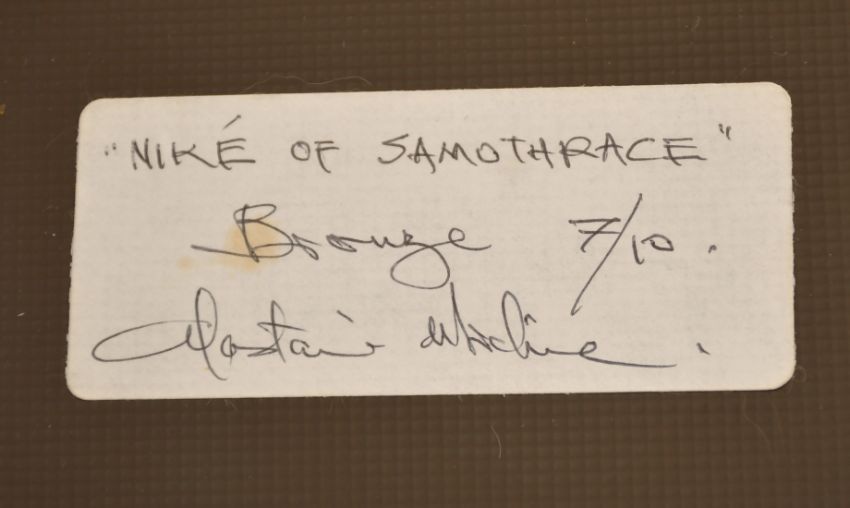 "NIKÉ OF SAMOTHRACE"
Bronze 7/10.
Alastair